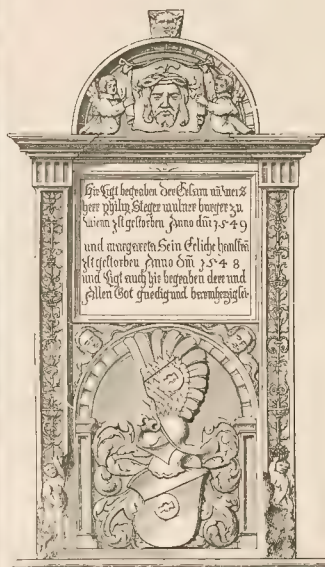 Hie Ligt begraben der Ersam uñ weis
herr philip Steger burger zu
wienn Ist gestorben Anno dm̄ 1549
und margareta Sein Eeliche hausfraũ
Ist gestorben Anno dm̄ 1548
und Ligt auch hie begraben dene und
Allen Got gnedig und barmherzig sei